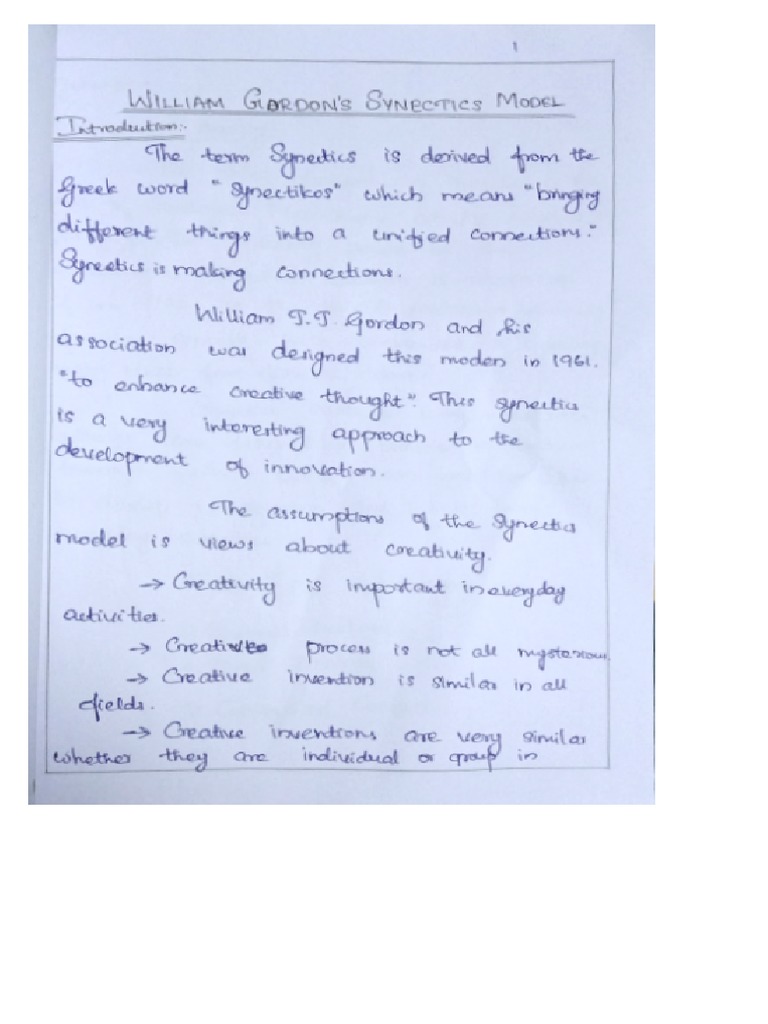 1
WILLIAM GORDON'S SYNECTICS MODEL
Introduction:-
The term Synectics is derived from the
Greek word "Synectikos" which means "bringing
different things into a unified connections."
Synectics is making connections.
William J.J. Gordon and his
association was designed this moden in 1961.
"to enhance creative thought". This synectics
is a very interesting approach to the
development of innovation.
The assumptions of the Synectics
model is views about creativity.
→ Creativity is important in everyday
activities.
→ Creative process is not all mysterious.
→ Creative invention is similar in all
fields.
→ Creative inventions are very similar
whether they are individual or group in